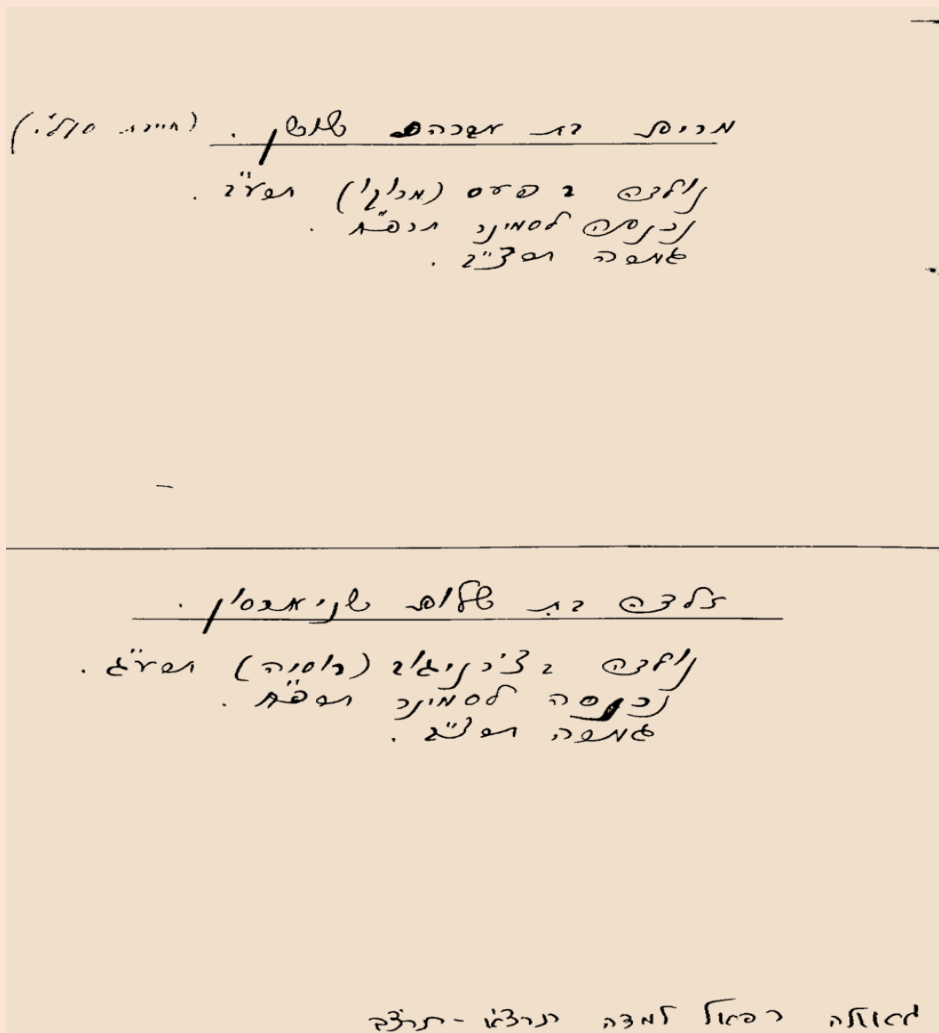 מרים בת אברהם שושן . (חיית סול'.)
נולדה ב פעס (מרוקו) תרע"ב .
נכנסה לסמינר תרפ"ח .
גמרה תרצ"ב .
זלדה בת שלום שניאורסון .
נולדה בצ'רניגוב (רוסיה) תרע"ג .
נכנסה לסמינר תרפ"ח .
גמרה תרצ"ב .
גאולה רפאל למדה תרצ"א - תרצ"ב